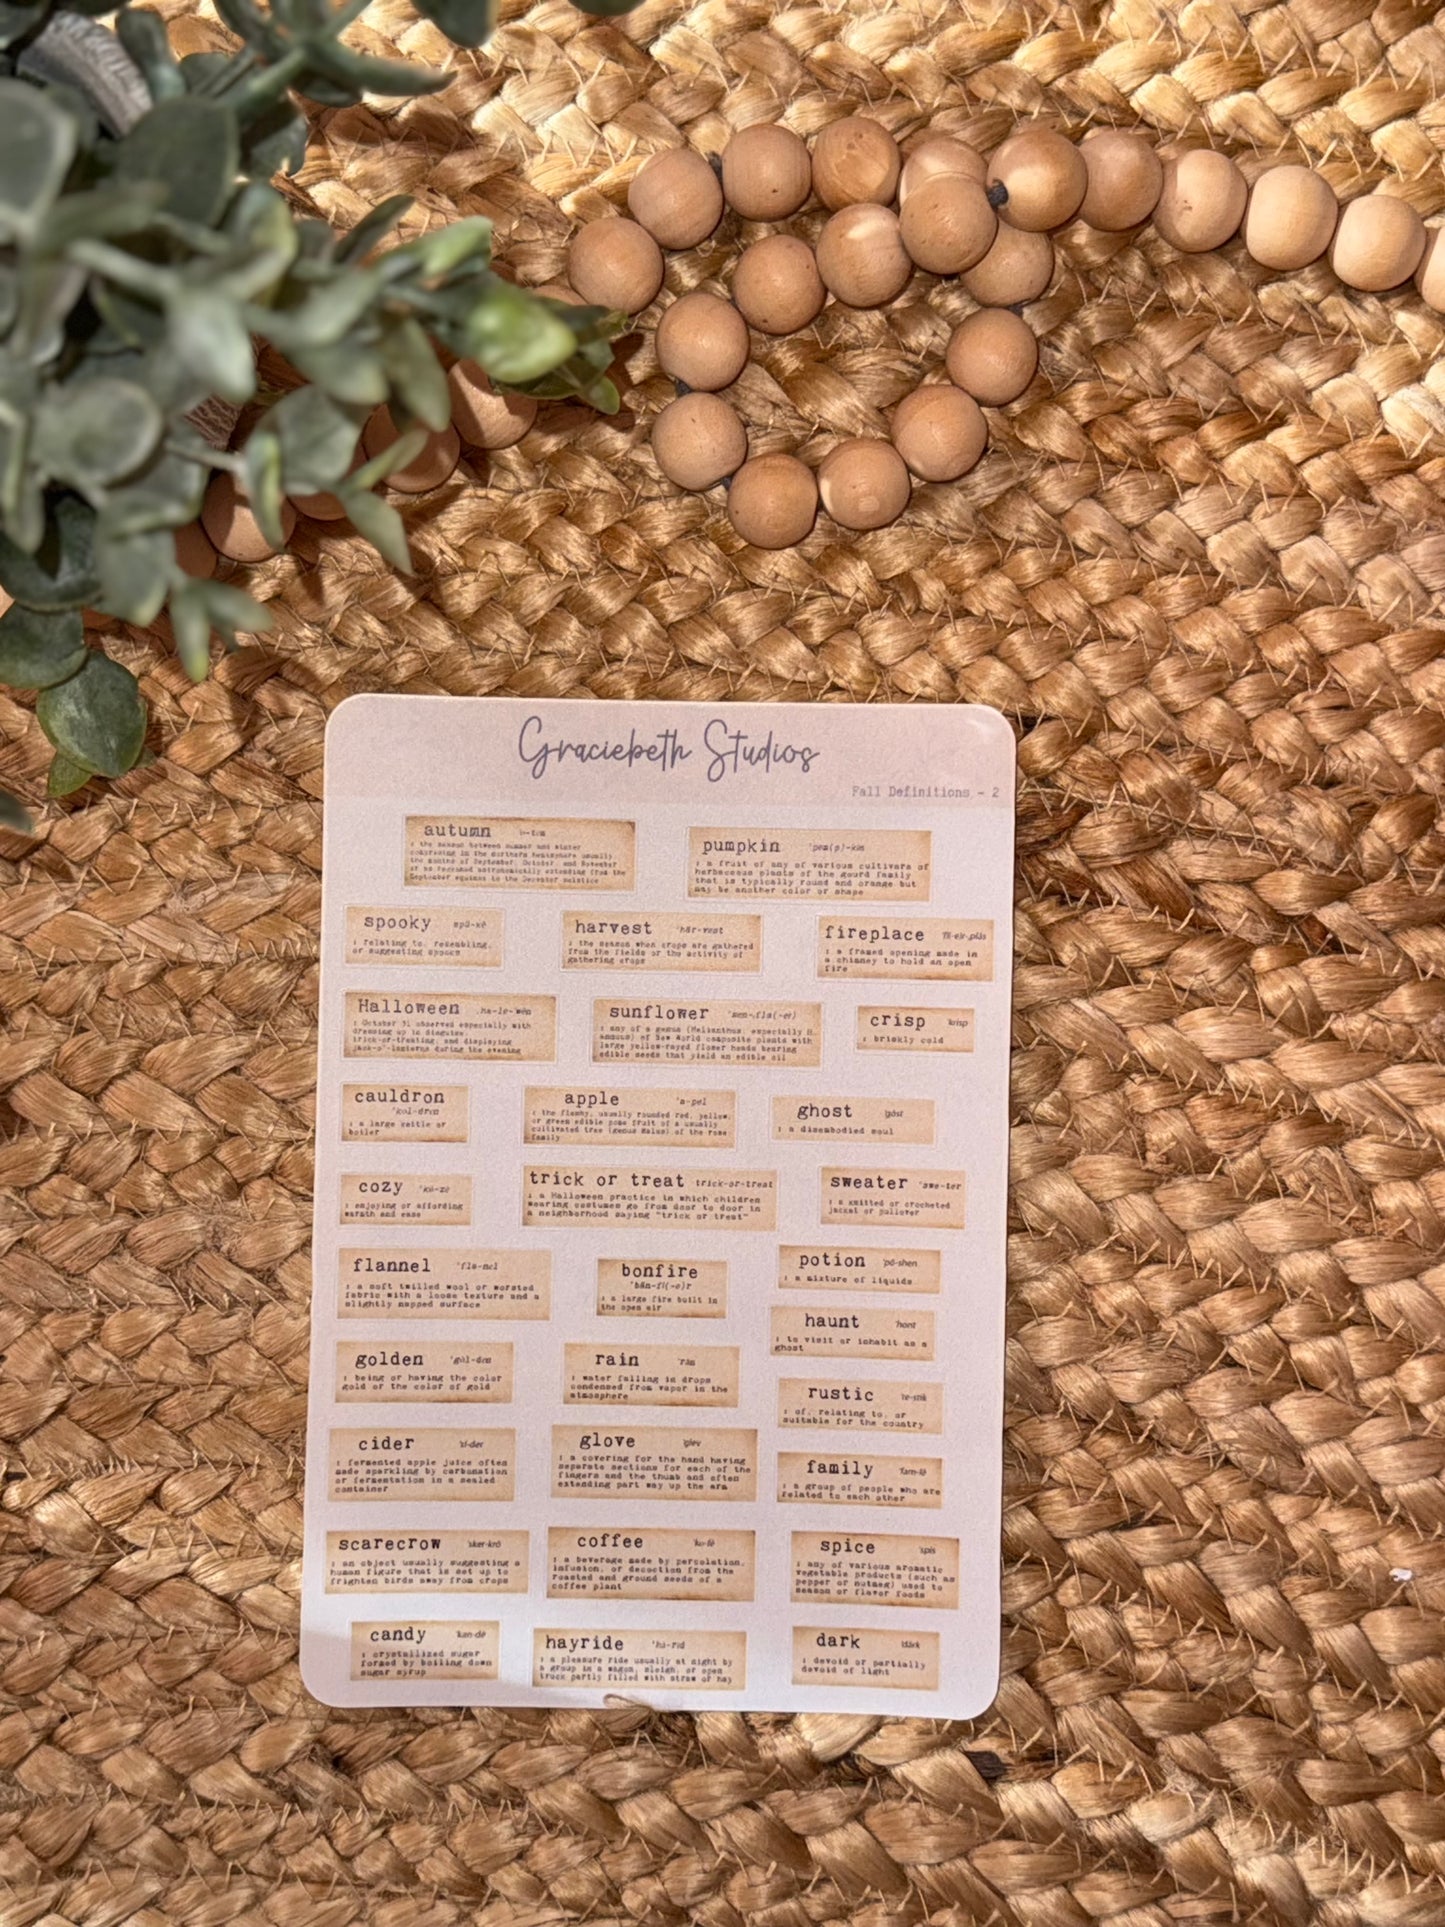 Graciebeth Studios
Fall Definitions - 2
autumn
: the season between summer and winter
comprising in the northern hemisphere usually
the months of September, October, and November
or as reckoned astronomically extending from the
September equinox to the December solstice
pumpkin 'pəm(p)-kin
: a fruit of any of various cultivars of
herbaceous plants of the gourd family
that is typically round and orange but
may be another color or shape
spooky spü-kē
: relating to, resembling,
or suggesting spooks
harvest 'här-vəst
: the season when crops are gathered
from the fields or the activity of
gathering crops
fireplace 'fī(-ə)r-ˌplās
: a framed opening made in
a chimney to hold an open
fire
Halloween ˌha-lə-ˈwēn
: October 31 observed especially with
dressing up in disguise,
trick-or-treating, and displaying
jack-o'-lanterns during the evening
sunflower 'sən-ˌflau̇(-ə)r
: any of a genus (Helianthus, especially H.
annuus) of New World composite plants with
large yellow-rayed flower heads bearing
edible seeds that yield an edible oil
crisp 'krisp
: briskly cold
cauldron
'kȯl-drən
: a large kettle or
boiler
apple 'a-pəl
: the fleshy, usually rounded red, yellow,
or green edible pome fruit of a usually
cultivated tree (genus Malus) of the rose
family
ghost 'gōst
: a disembodied soul
cozy 'kō-zē
: enjoying or affording
warmth and ease
trick or treat trick-or-treat
: a Halloween practice in which children
wearing costumes go from door to door in
a neighborhood saying "trick or treat"
sweater 'swe-tər
: a knitted or crocheted
jacket or pullover
flannel 'fla-nəl
: a soft twilled wool or worsted
fabric with a loose texture and a
slightly napped surface
bonfire
'bän-ˌfī(-ə)r
: a large fire built in
the open air
potion 'pō-shən
: a mixture of liquids
haunt 'hȯnt
: to visit or inhabit as a
ghost
golden 'gōl-dən
: being or having the color
gold or the color of gold
rain 'rān
: water falling in drops
condensed from vapor in the
atmosphere
rustic 'rə-stik
: of, relating to, or
suitable for the country
cider 'sī-dər
: fermented apple juice often
made sparkling by carbonation
or fermentation in a sealed
container
glove 'gləv
: a covering for the hand having
separate sections for each of the
fingers and the thumb and often
extending part way up the arm
family 'fam-lē
: a group of people who are
related to each other
scarecrow 'sker-krō
: an object usually suggesting a
human figure that is set up to
frighten birds away from crops
coffee 'kȯ-fē
: a beverage made by percolation,
infusion, or decoction from the
roasted and ground seeds of a
coffee plant
spice 'spīs
: any of various aromatic
vegetable products (such as
pepper or nutmeg) used to
season or flavor foods
candy 'kan-dē
: crystallized sugar
formed by boiling down
sugar syrup
hayride 'hā-rīd
: a pleasure ride usually at night by
a group in a wagon, sleigh, or open
truck partly filled with straw or hay
dark 'därk
: devoid or partially
devoid of light